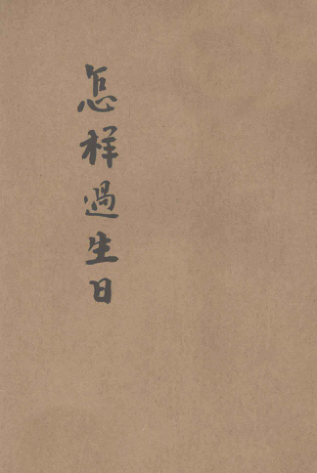 怎样過生日